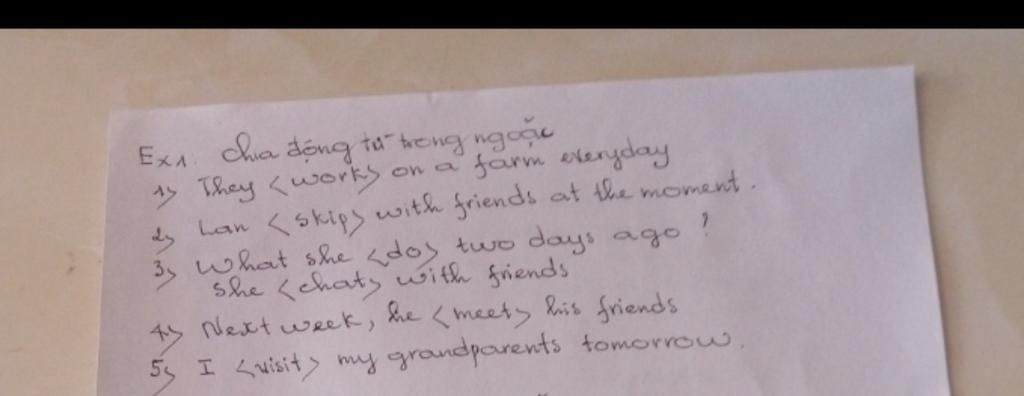 Ex1. Chia động từ trong ngoặc
1> They <work> on a farm everyday
2> Lan <skip> with friends at the moment.
3> What she <do> two days ago ?
she <chat> with friends
4> Next week, he <meet> his friends
5> I <visit> my grandparents tomorrow.